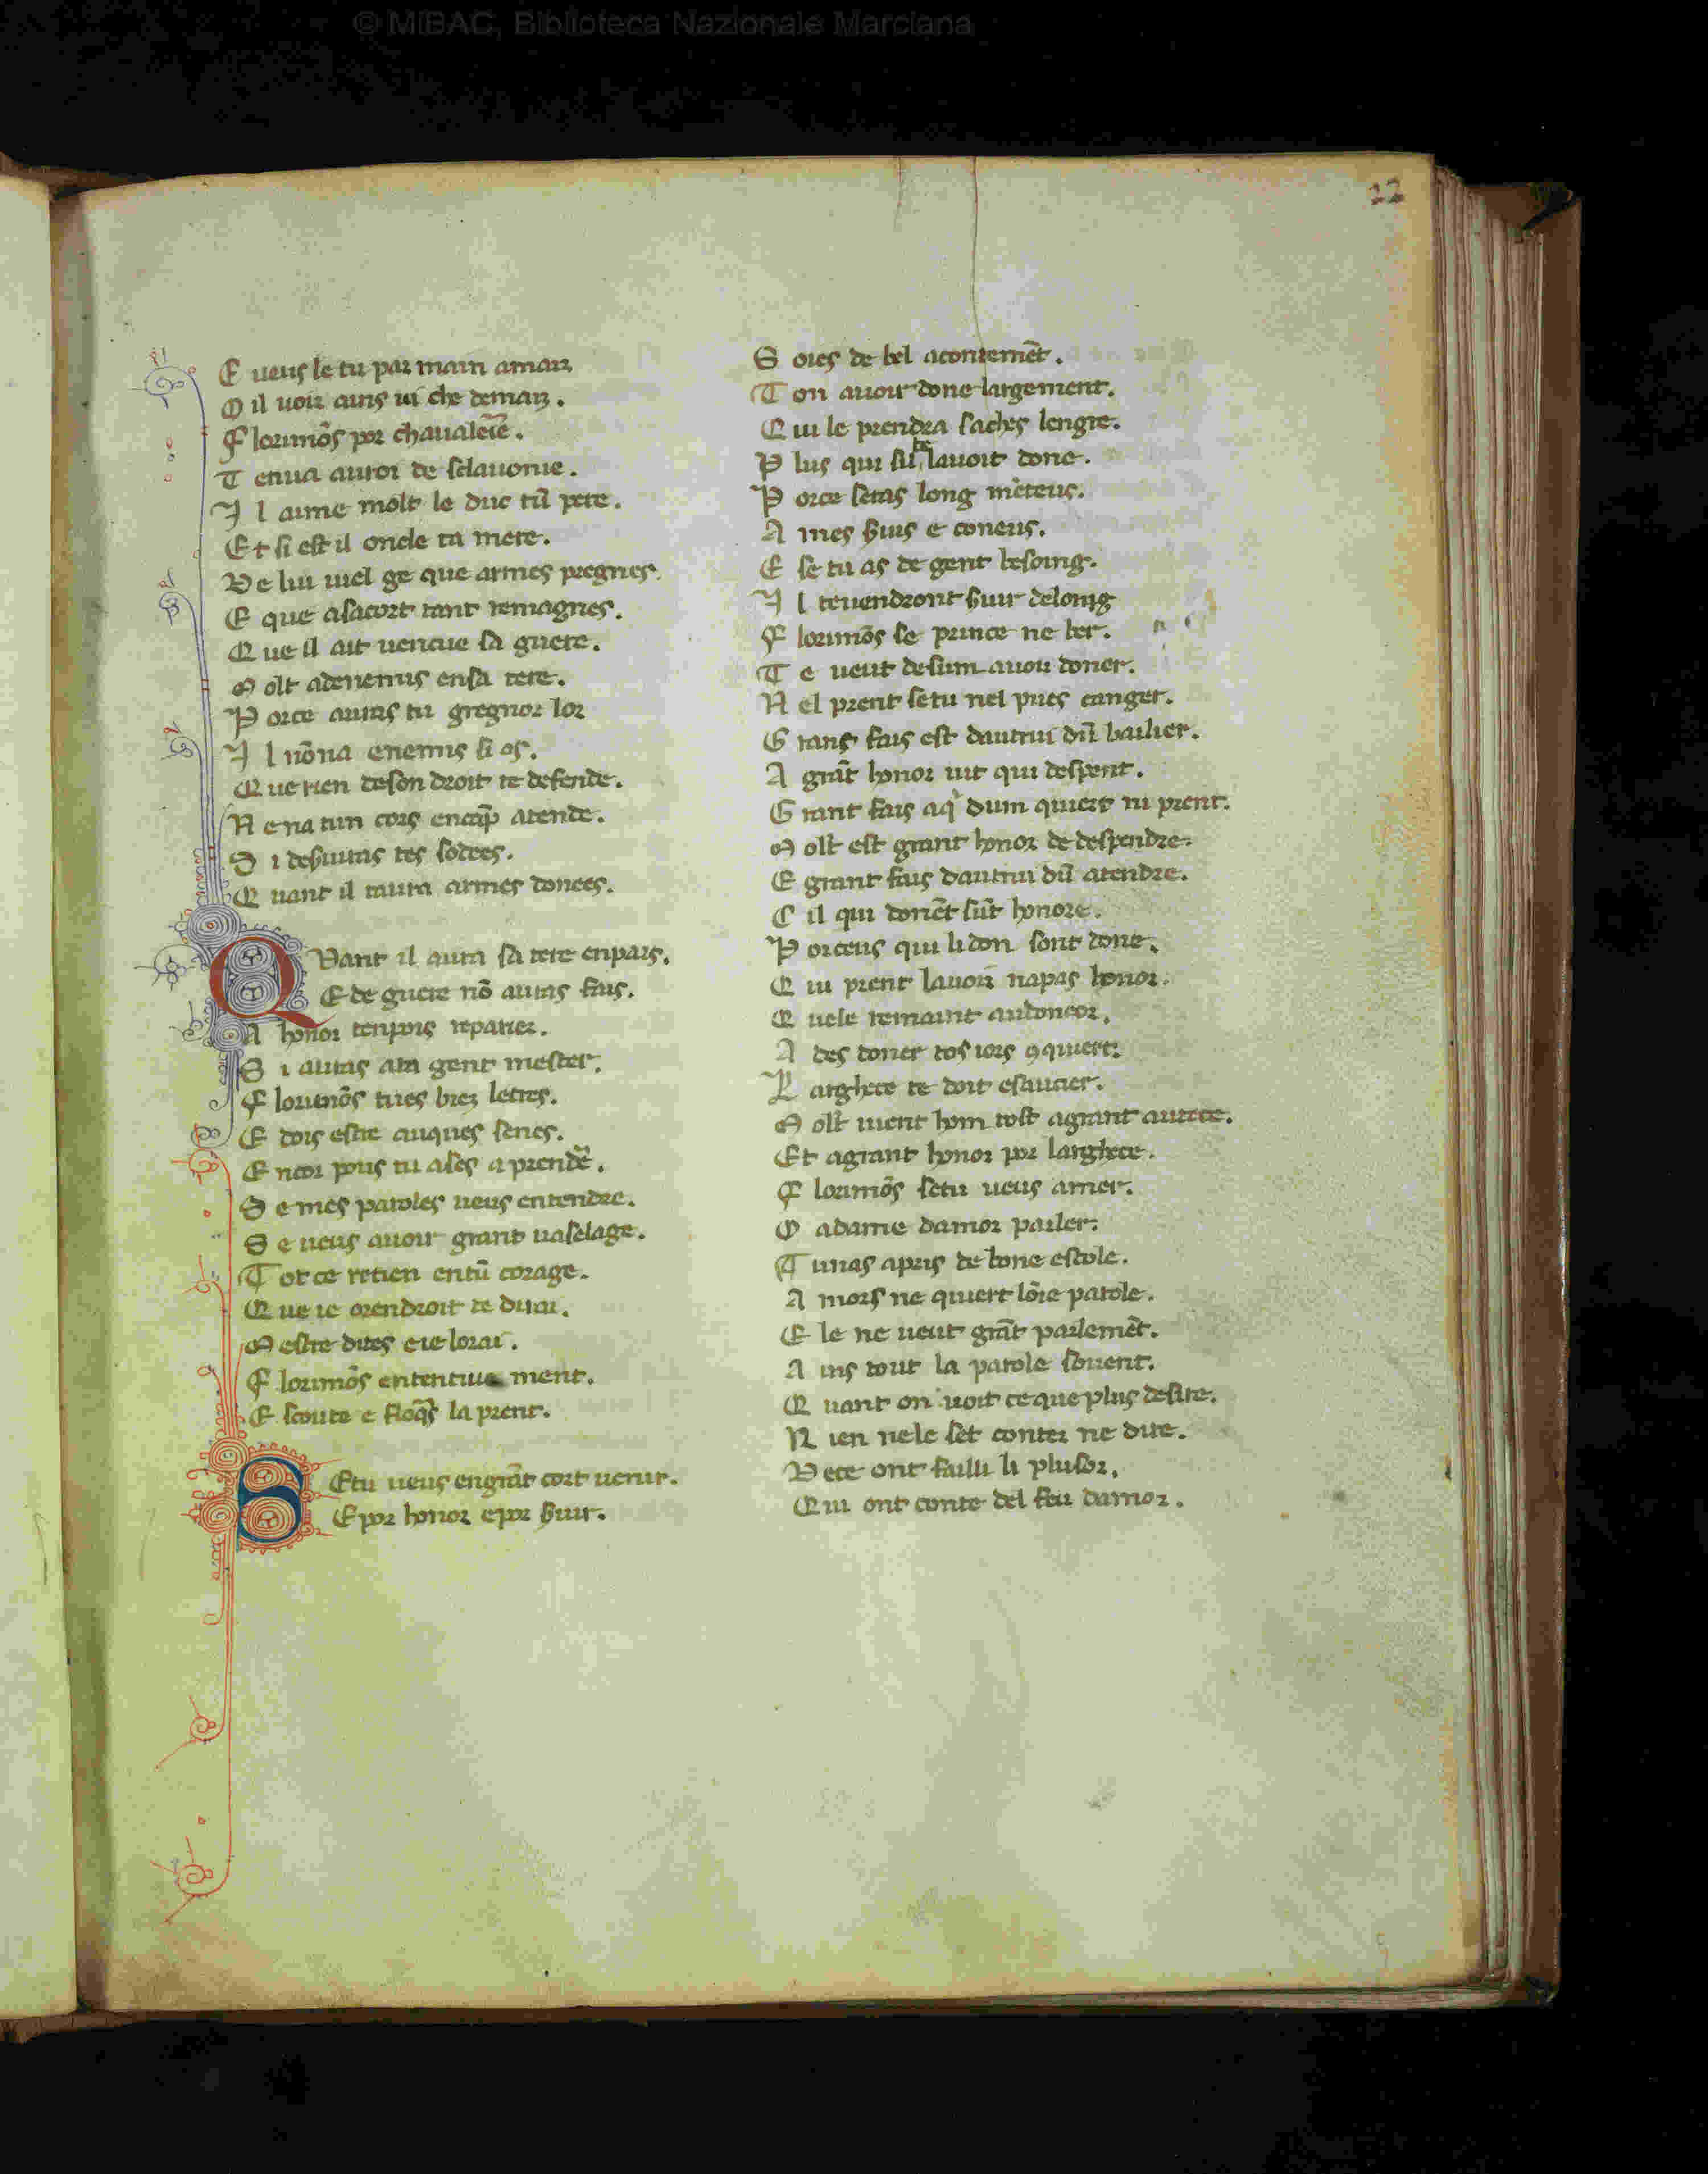 © MiBAC, Biblioteca Nazionale Marciana
22
E ueus le tu par main amaɩ̃
O il uoir ains ui che demarz.
F lorimõs por chaualerie.
T enua auroi de sclauonie.
I l aime molt le duc tũ pere.
Et si est il oncle ta mere.
De lui uiel ge que armes pregnes.
E que asacort tant remagnes.
Q ue il ait uencue sa guere.
M olt adenemis ensa tere.
P orce auras tu gregnor loz
I l nõna enemis si os.
Q ue rien deson droit te defende.
N ena tun cors encãp atende.
S i desuiras tes sodees.
Q uant il taura armes donees.
Q Vant il aura sa tere enpais.
E de guere nõ auras fais.
A honor tenpois reparier.
S i auras ata gent mestier.
F lorimõs tues biez letres.
E dois estre auques senes.
E ncor pous tu ases aprendẽ.
S e mes paroles ueus entendre.
S e ueus auoir grant uaselage.
T ot ce retien entũ corage.
Q ue ie orendroit te dirai.
M estre dites eie lorai.
F lorimõs ententiue ment.
E scoute e floq̃s la prent.
S Etu ueus engrãt cort uenir.
E por honor epor ẜuir.
S oies de bel acontemẽt.
T on auoir done largement.
Q ui le prendra saches lengre.
P lus qui sil lauoit done.
P orce seras long mẽteus.
A mes ẜuis e coneus.
E se tu as de gent besoing.
I l teuendront ẜuir deloing
F lorimõs se prince ne ber.
T e ueut desum auoir doner.
N el prent setu nel pues canger.
G rans fais est dautrui dũ bailier.
A grãt honor uit qui despent.
G rant fais aq̃ dum quiert ni prent.
M olt est grant honor de despendre.
E grant fais dautrui dũ atendre.
C il qui donẽt sũt honore.
P orceus qui li don sont done.
Q ui prent lauoir napas honor.
Q uele remaint audoneor.
A des doner tos iors ꝯquiert.
L arghece te doit esaucier.
M olt uient hom tost agrant autece.
Et agrant honor por larghece.
F lorimõs setu ueus amer.
O adame damor parler.
T unas apris de bone escole.
A mors ne quiert lõie parole.
E le ne ueut grãt parlemẽt.
A ins tout la parole souent.
Q uant on uoit ce que plus desire.
N ien nele set conter ne dire.
D ece ont failli li plusor.
Qui ont conte del feu damor.